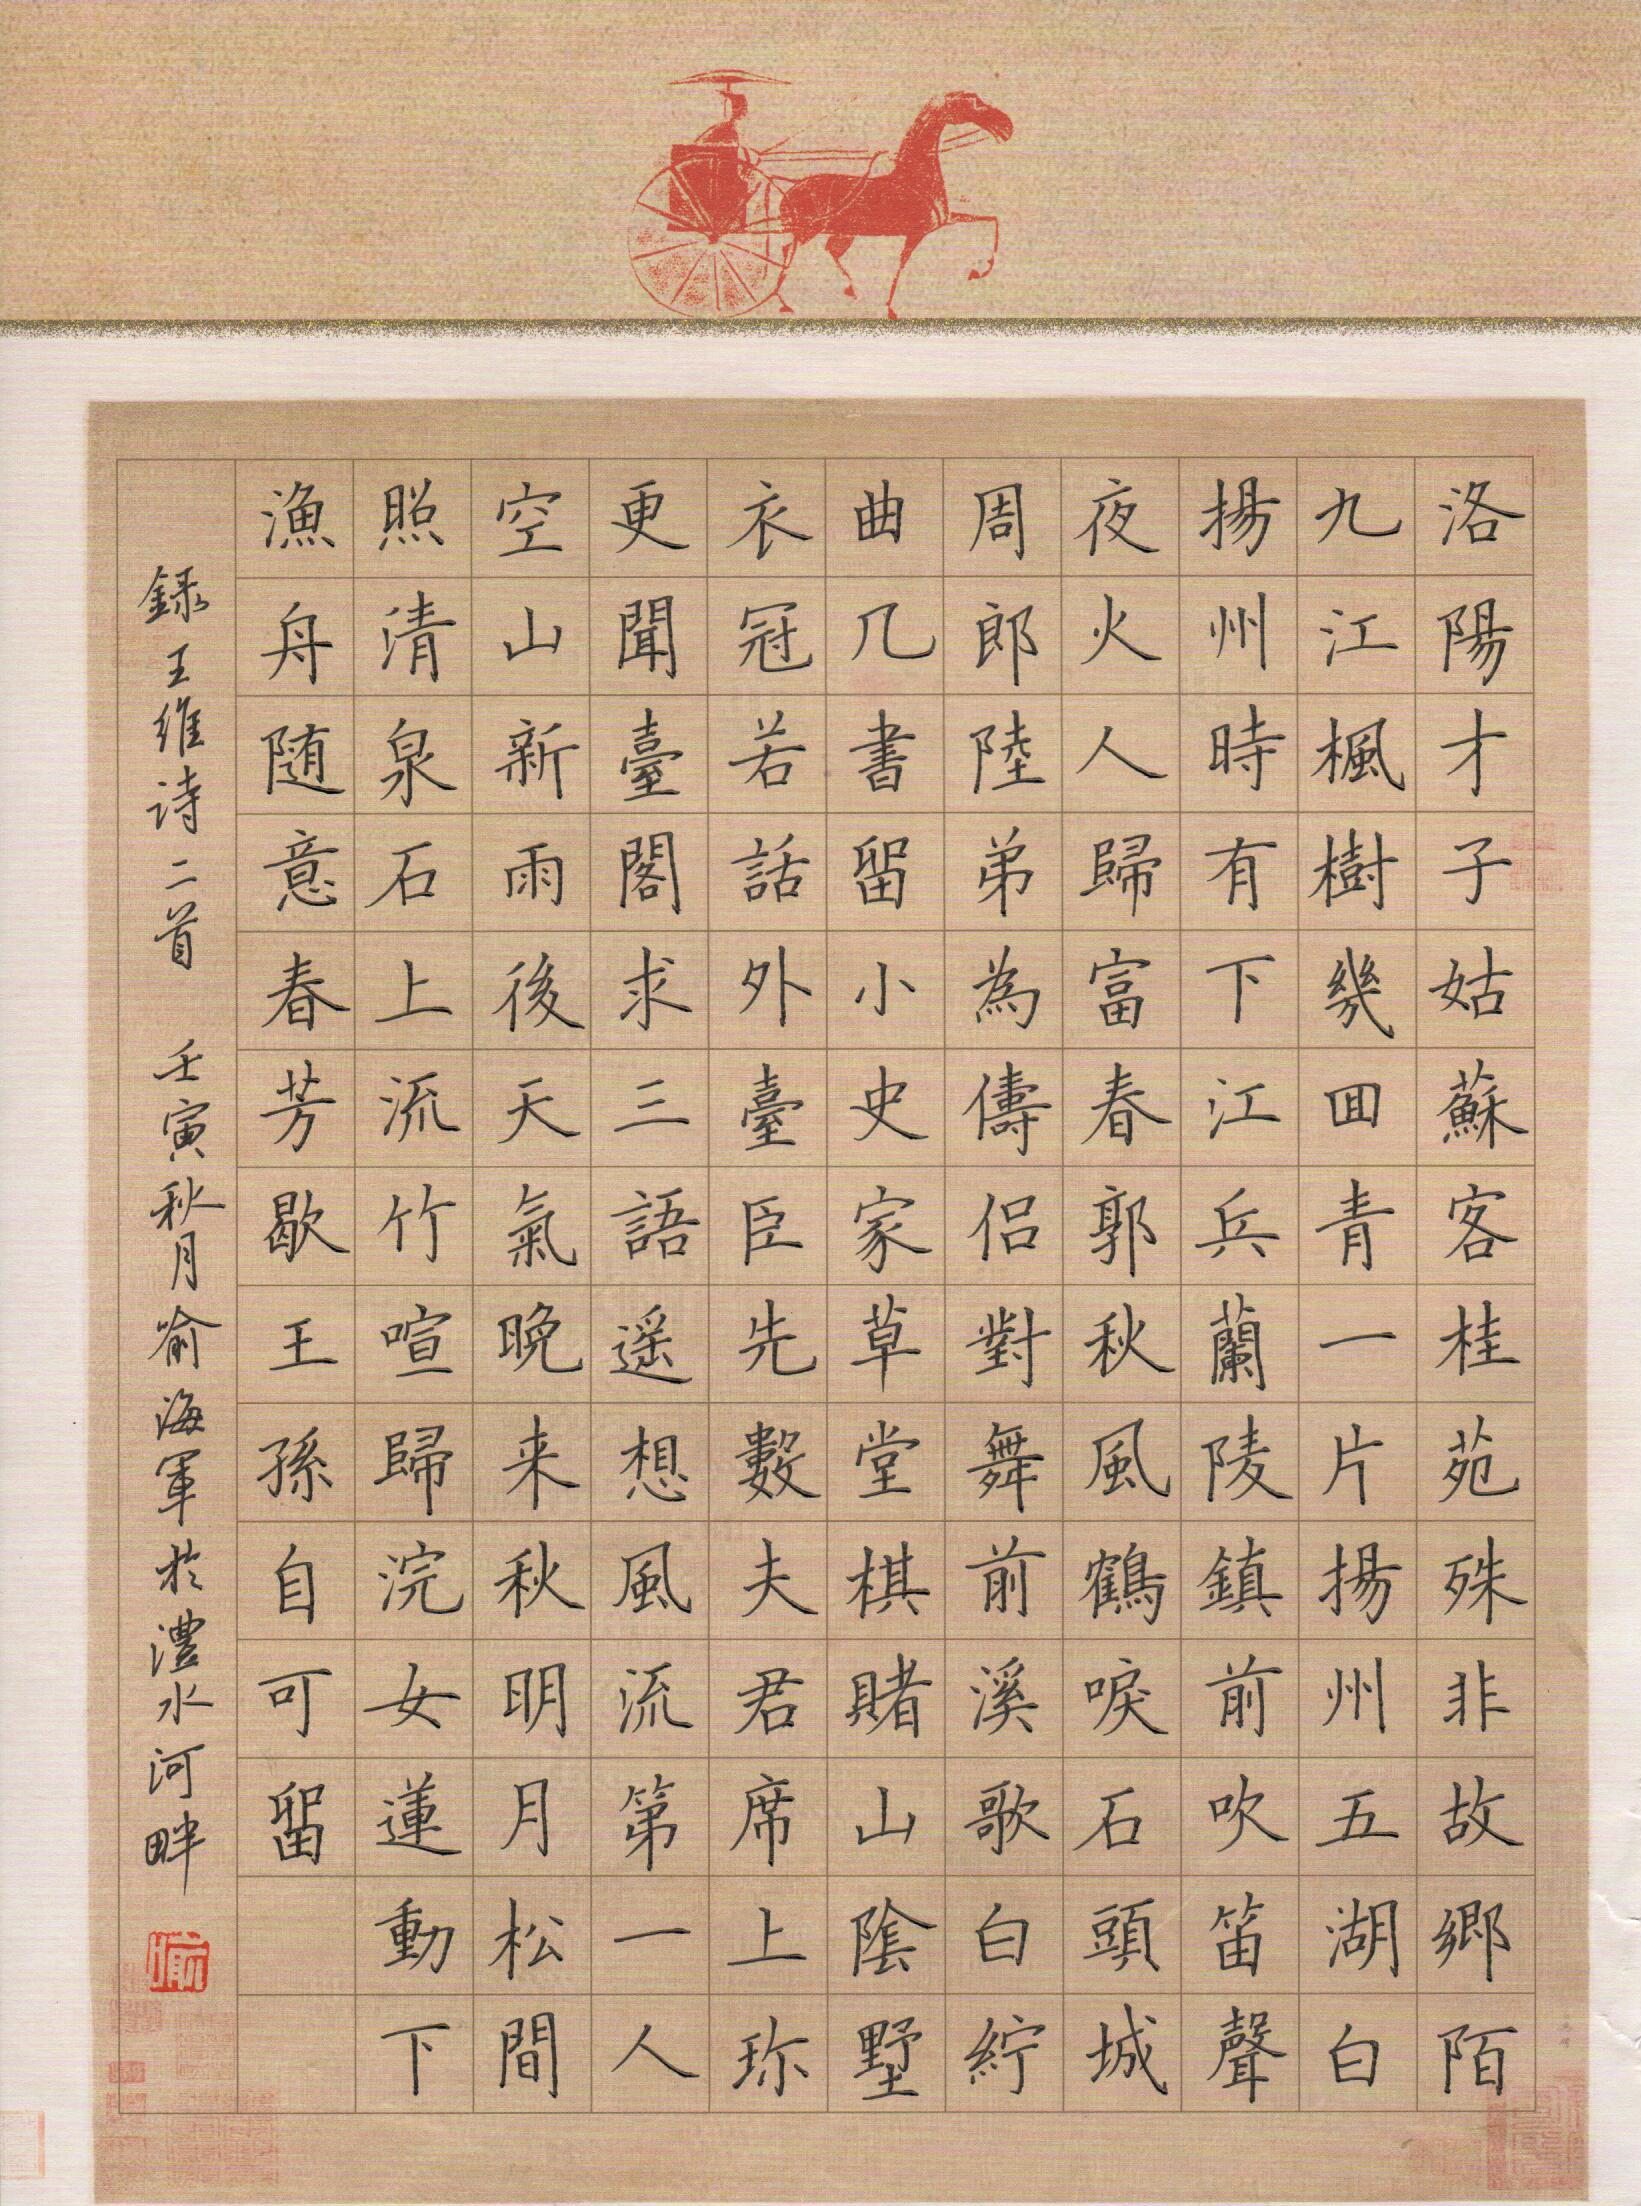 洛陽才子姑蘇客桂苑殊非故鄉陌
九江楓樹幾囬青一片揚州五湖白
揚州時有下江兵蘭陵鎮前吹笛聲
夜火人歸富春郭秋風鶴唳石頭城
周郎陸弟為儔侶對舞前溪歌白紵
曲几書留小史家草堂棋賭山陰墅
衣冠若話外臺臣先數夫君席上珎
更聞臺閣求三語遥想風流第一人
空山新雨後天氣晚来秋明月松間
照清泉石上流竹喧歸浣女蓮動下
漁舟随意春芳歇王孫自可留
録王維诗二首 壬寅秋月喻海軍於澧水河畔